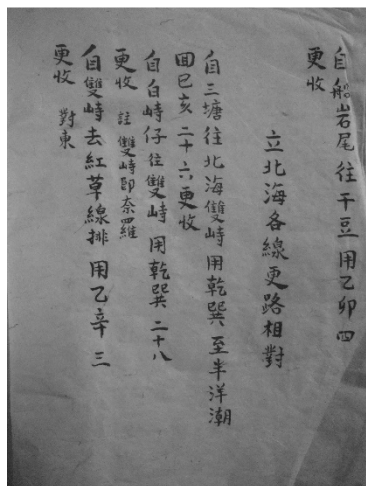 自船岩尾往干豆用乙卯四
更收
立北海各線更路相對
自三塘往北海雙峙用乾巽至半洋潮
回巳亥二十六更收
自白峙仔往雙峙用乾巽二十八
更收 註雙峙即奈四羅
自雙峙去紅草線排用乙辛三
更收 對東